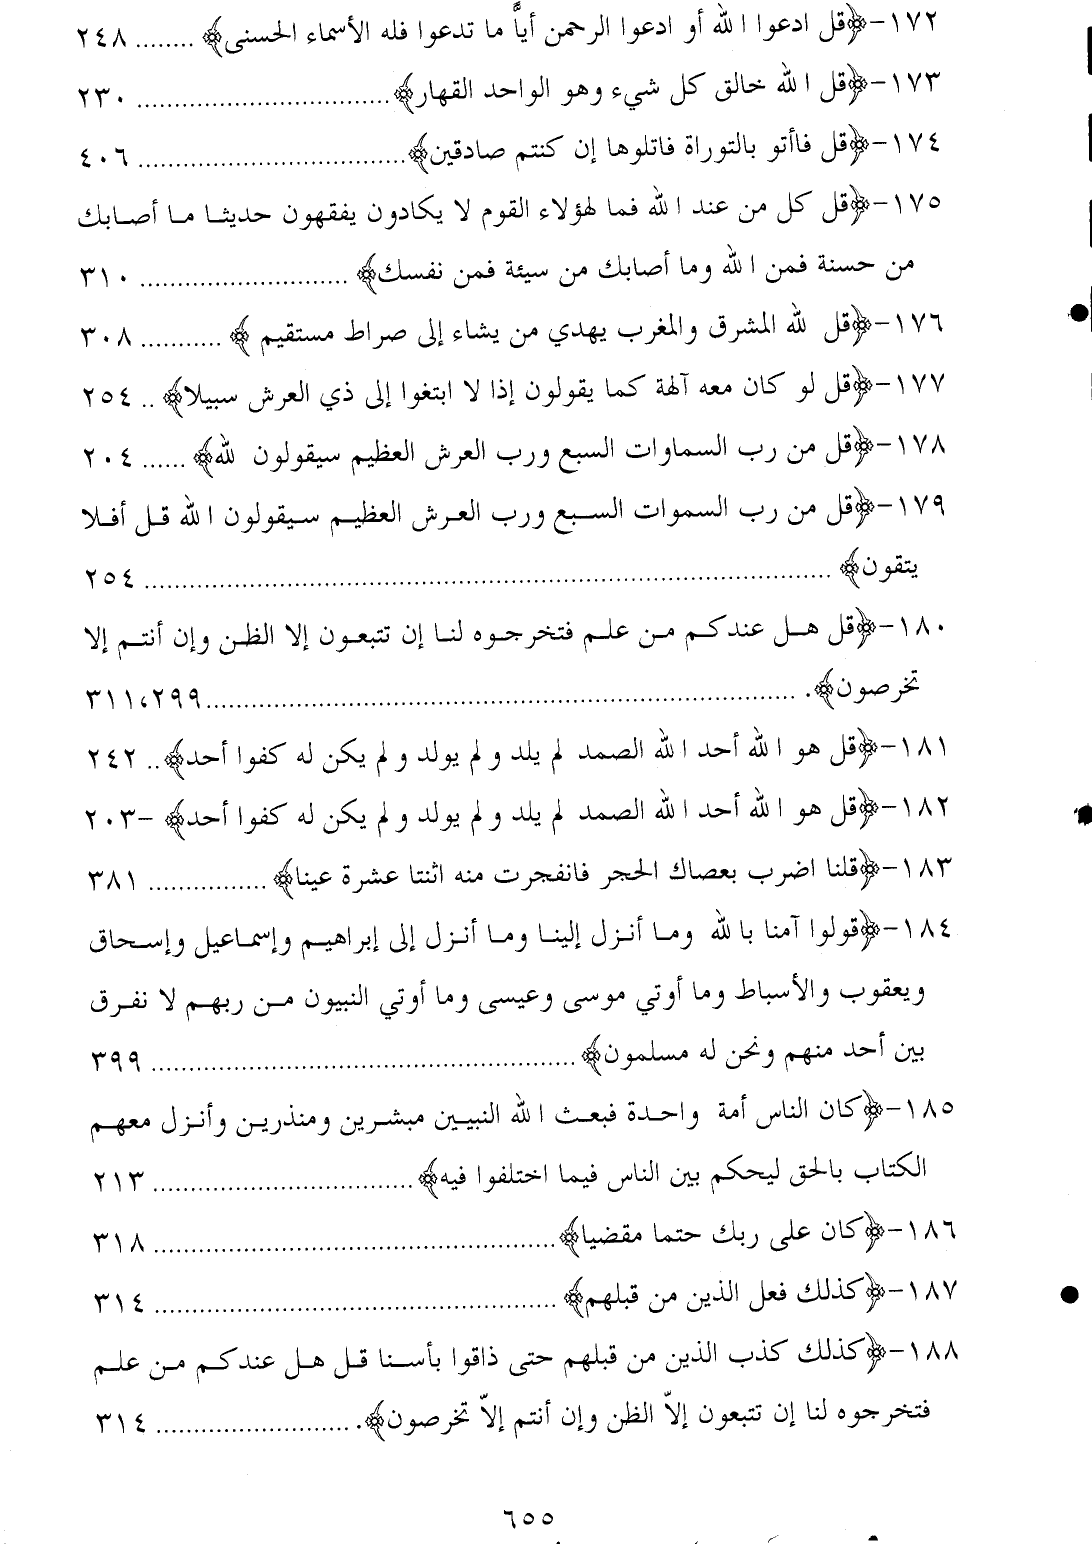 ١٧٢-﴿قل ادعوا الله أو ادعوا الرحمن أياًّ ما تدعوا فله الأسماء الحسنى﴾ ........ ٢٤٨
١٧٣-﴿قل الله خالق كل شيء وهو الواحد القهار﴾................................. ٢٣٠
١٧٤-﴿قل فاأتو بالتوراة فاتلوها إن كنتم صادقين﴾................................... ٤٠٦
١٧٥-﴿قل كل من عند الله فما لهؤلاء القوم لا يكادون يفقهون حديثا ما أصابك
من حسنة فمن الله وما أصابك من سيئة فمن نفسك﴾ ........................... ٣١٠
١٧٦-﴿قل لله المشرق والمغرب يهدي من يشاء إلى صراط مستقيم ﴾ ........... ٣٠٨
١٧٧-﴿قل لو كان معه آلهة كما يقولون إذا لا ابتغوا إلى ذي العرش سبيلا﴾ .. ٢٥٤
١٧٨-﴿قل من رب السماوات السبع ورب العرش العظيم سيقولون لله﴾ ...... ٢٠٤
١٧٩-﴿قل من رب السموات السبع ورب العرش العظيم سيقولون الله قل أفلا
يتقون﴾ ........................................................................................... ٢٥٤
١٨٠-﴿قل هل عندكم من علم فتخرجوه لنا إن تتبعون إلا الظن وإن أنتم إلا
تخرصون﴾. ..............................................................................٣١١،٢٩٩
١٨١-﴿قل هو الله أحد الله الصمد لم يلد ولم يولد ولم يكن له كفوا أحد﴾.. ٢٤٢
١٨٢-﴿قل هو الله أحد الله الصمد لم يلد ولم يولد ولم يكن له كفوا أحد﴾ -٢٠٣
١٨٣-﴿قلنا اضرب بعصاك الحجر فانفجرت منه اثنتا عشرة عينا﴾................ ٣٨١
١٨٤-﴿قولوا آمنا بالله وما أنزل إلينا وما أنزل إلى إبراهيم وإسماعيل وإسحاق
ويعقوب والأسباط وما أوتي موسى وعيسى وما أوتي النبيون من ربهم لا نفرق
بين أحد منهم ونحن له مسلمون﴾....................................................... ٣٩٩
١٨٥-﴿كان الناس أمة واحدة فبعث الله النبيين مبشرين ومنذرين وأنزل معهم
الكتاب بالحق ليحكم بين الناس فيما اختلفوا فيه﴾.................................. ٢١٣
١٨٦-﴿كان على ربك حتما مقضيا﴾..................................................... ٣١٨
١٨٧-﴿كذلك فعل الذين من قبلهم﴾..................................................... ٣١٤
١٨٨-﴿كذلك كذب الذين من قبلهم حتى ذاقوا بأسنا قل هل عندكم من علم
فتخرجوه لنا إن تتبعون إلاّ الظن وإن أنتم إلاّ تخرصون﴾. ......................... ٣١٤
٦٥٥